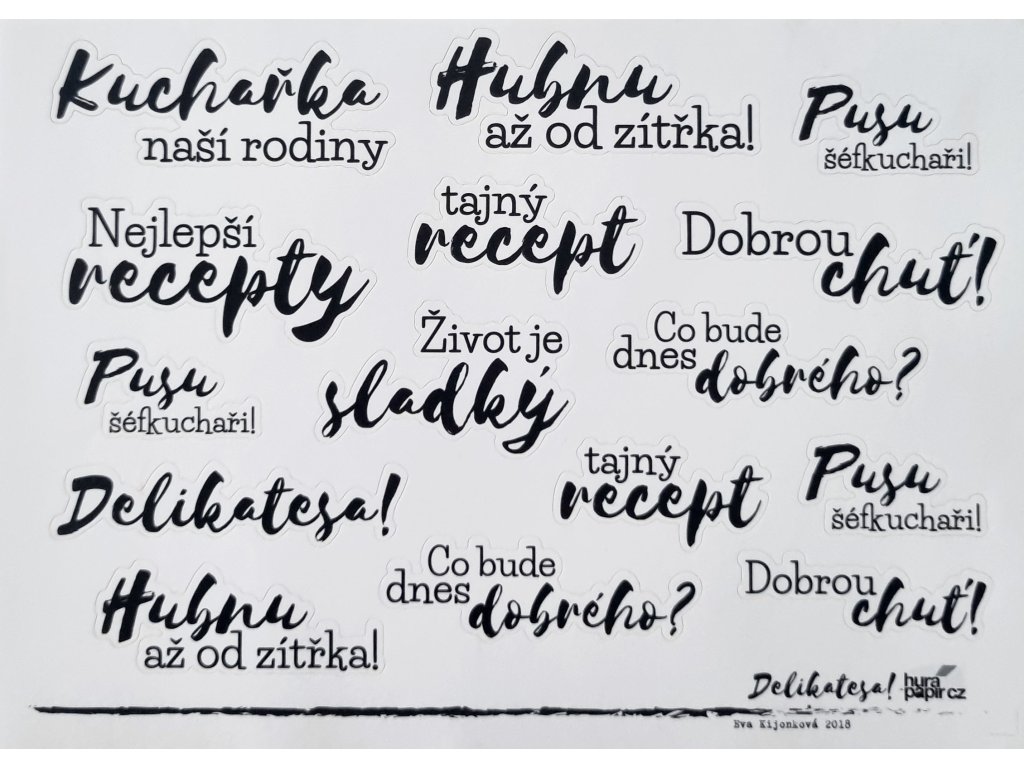 Kuchařka
naší rodiny
Hubnu
až od zítřka!
Pusu
šéfkuchaři!
Nejlepší
recepty
tajný
recept
Dobrou
chuť!
Pusu
šéfkuchaři!
Život je
sladký
Co bude
dnes dobrého?
Delikatesa!
tajný
recept
Pusu
šéfkuchaři!
Hubnu
až od zítřka!
Co bude
dnes dobrého?
Dobrou
chuť!
Delikatesa! hurá
papír cz
Eva Kijonková 2018